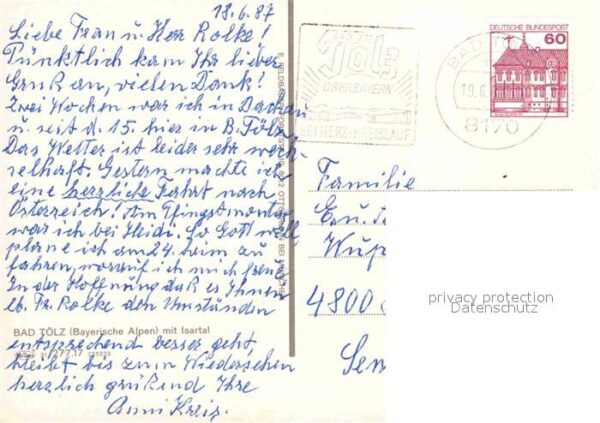 18.6.87
Liebe Frau u Herr Rolke!
Pünktlich kam Ihr lieber
Gruß an, vielen Dank!
Zwei Wochen war ich in Dachau
u. seit d. 15. hier in B. Tölz
Das Wetter ist leider sehr wech-
selhaft. Gestern machte ich
eine herzliche Fahrt nach
Österreich! Am Pfingstmontag
war ich bei Heidi. So Gott will
plane ich am 24. heim zu
fahren, worauf ich mich freue
In der Hoffnung daß es Ihnen
lb. Fr. Rolke den Umständen
BAD TÖLZ (Bayerische Alpen) mit Isartal
277.17
entsprechend besser geht
bleibt bis zum Wiedersehen
herzlich grüßend Ihre
Anni
BAD
Tölz
OBERBAYERN
BEI HERZ+KREISLAUF
BAD
8170
DEUTSCHE BUNDESPOST
60
Familie
4800
privacy protection
Datenschutz